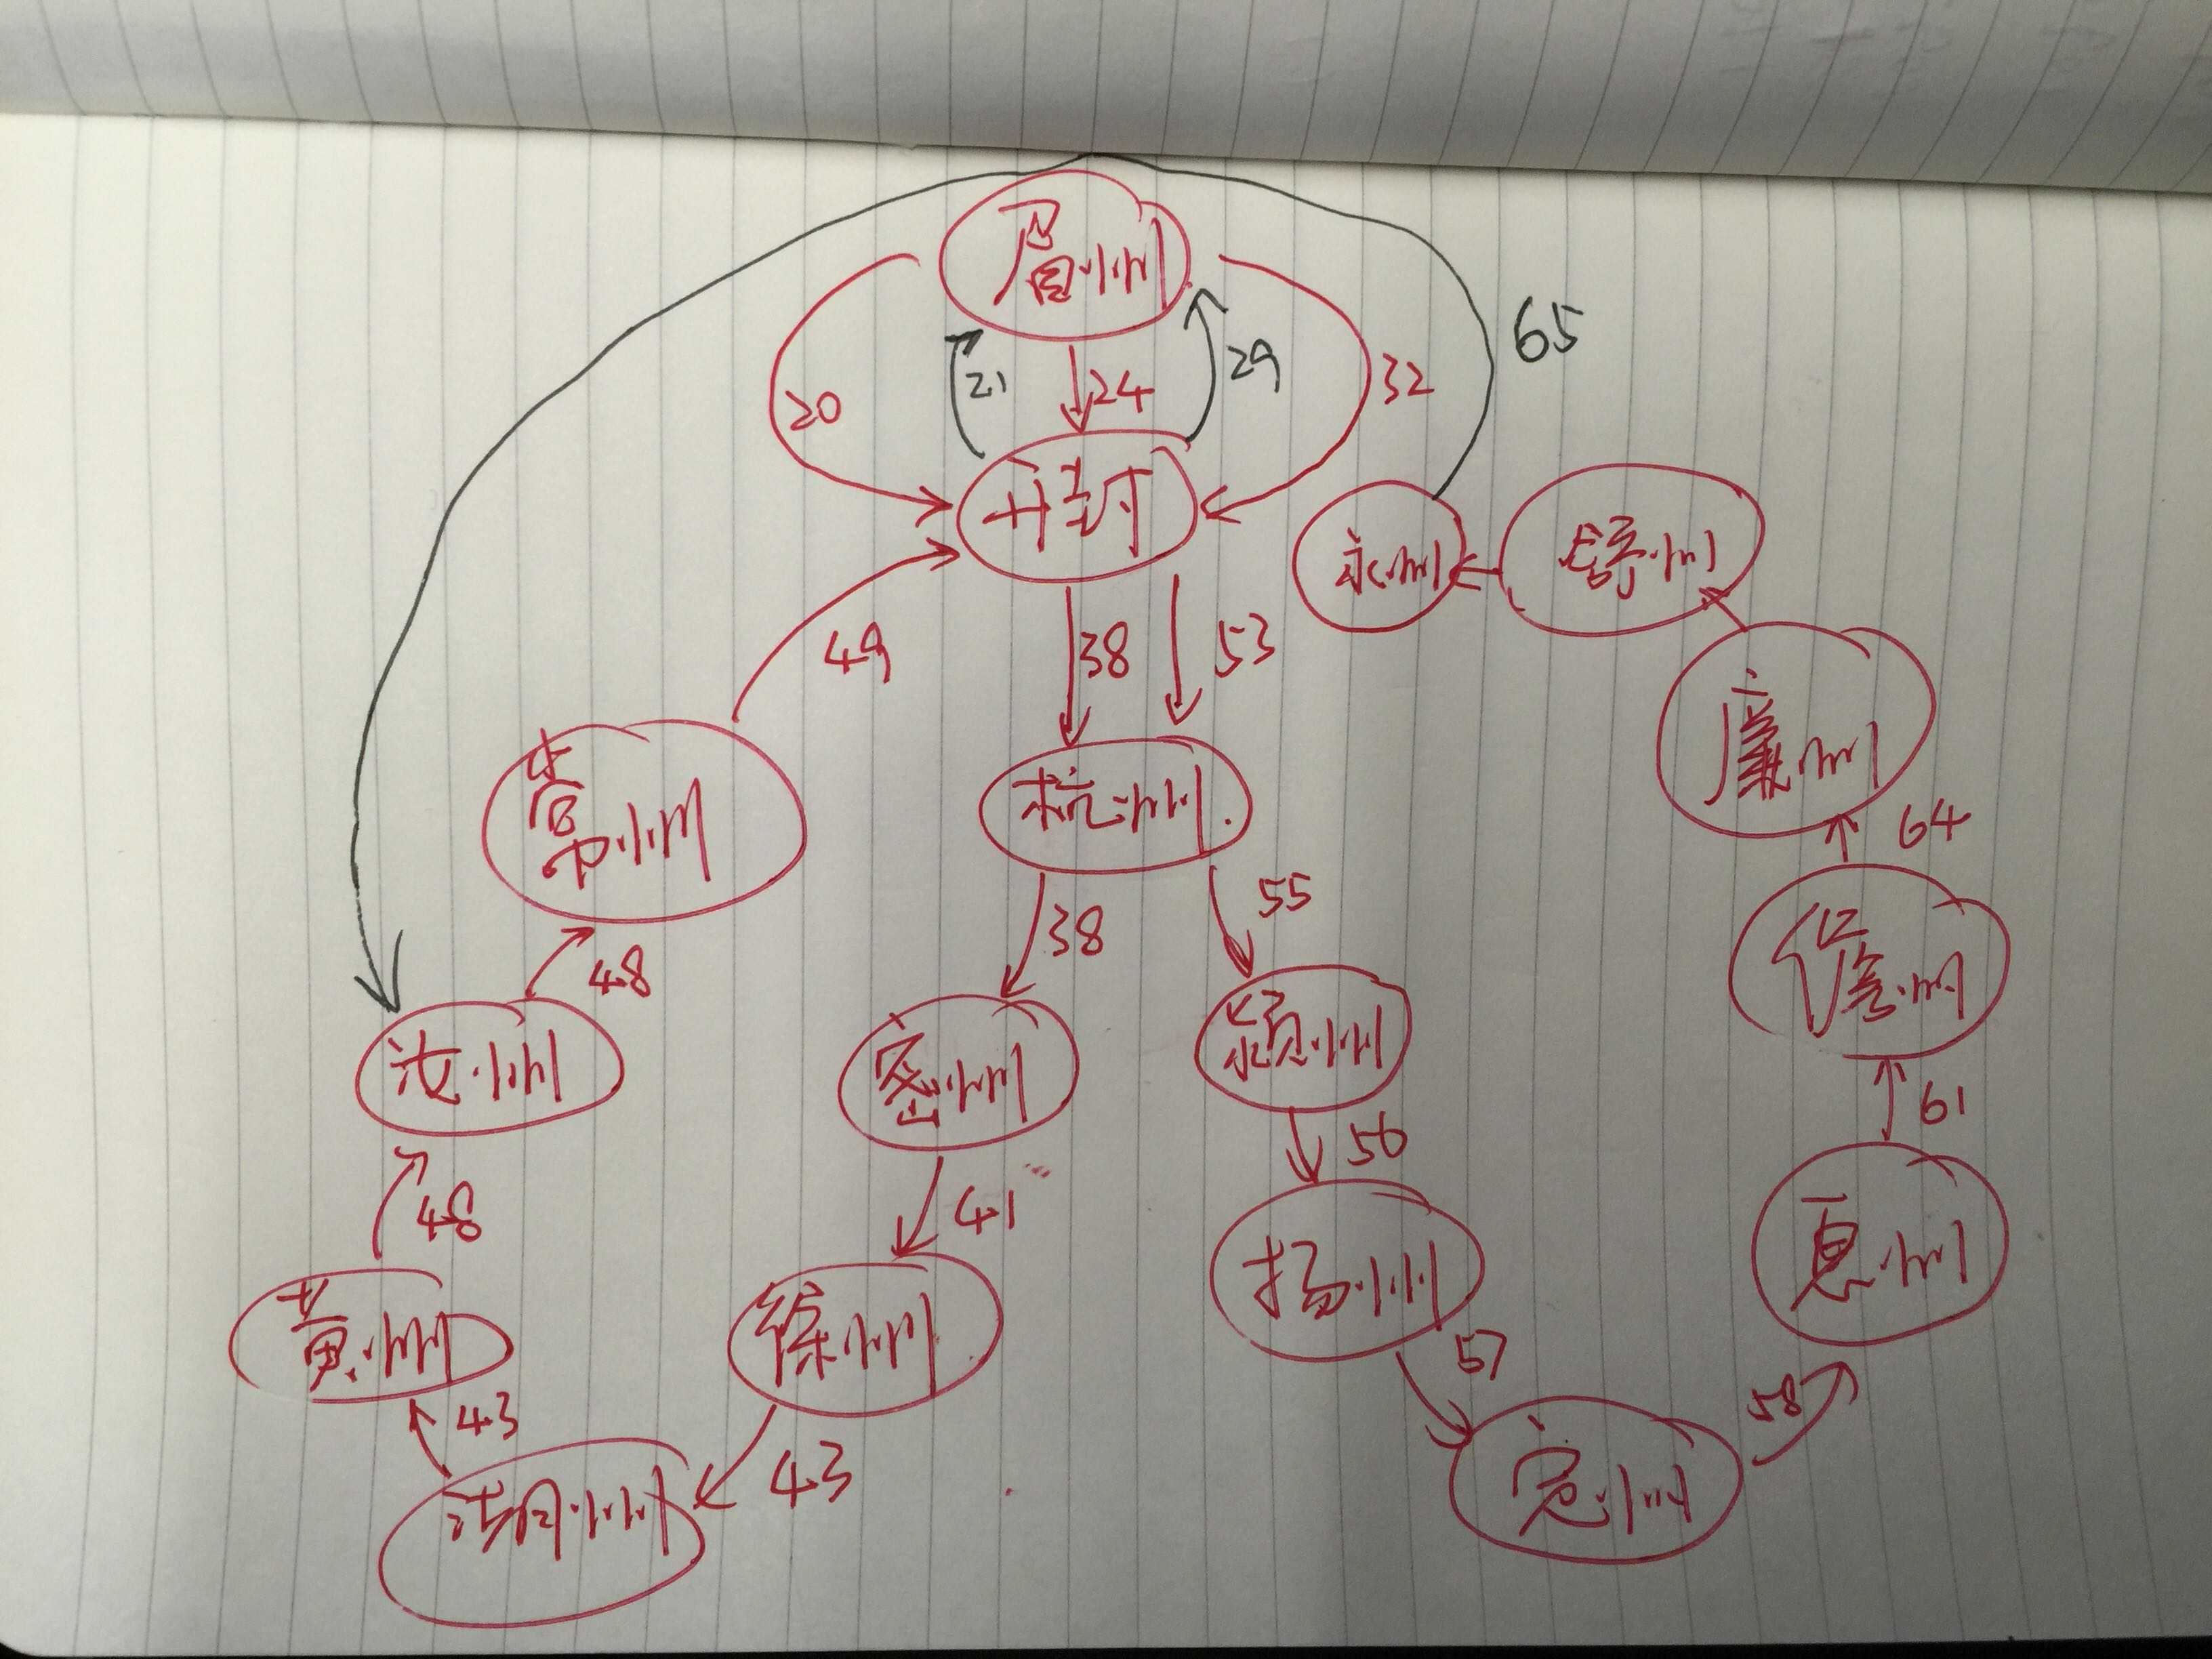 眉州
65
21
29
24
32
20
开封
永州
舒州
49
38
53
廉州
常州
杭州
64
55
38
48
儋州
汝州
密州
颍州
61
56
48
41
惠州
扬州
黄州
徐州
57
58
43
43
定州
湖州